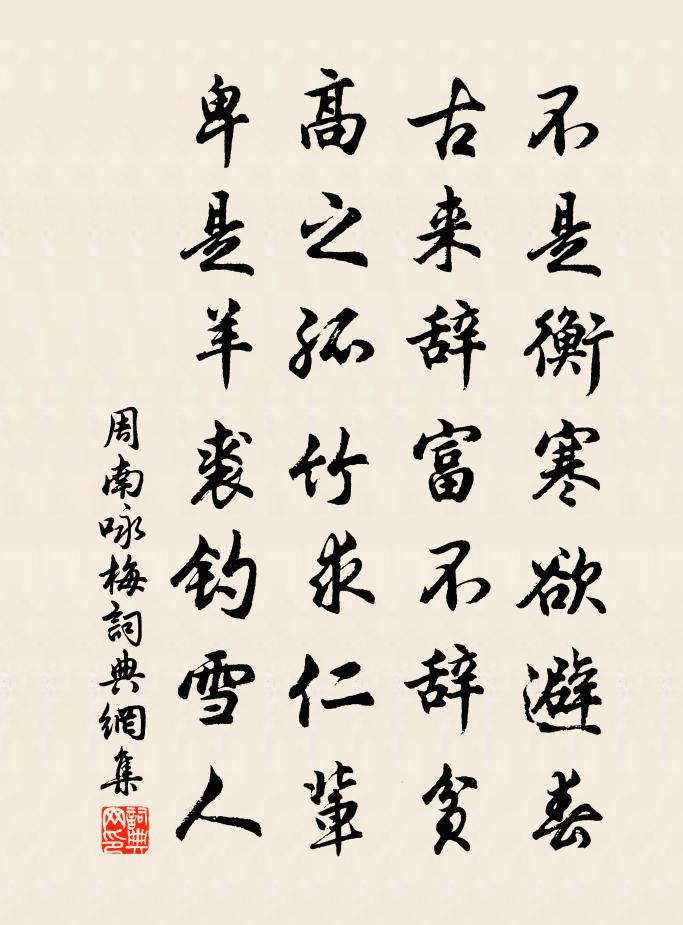 不是衡寒欲避春
古来辞富不辞贫
高之孤竹求仁辈
卑是羊裘钓雪人
周南咏梅詞典網集
詞典
网印